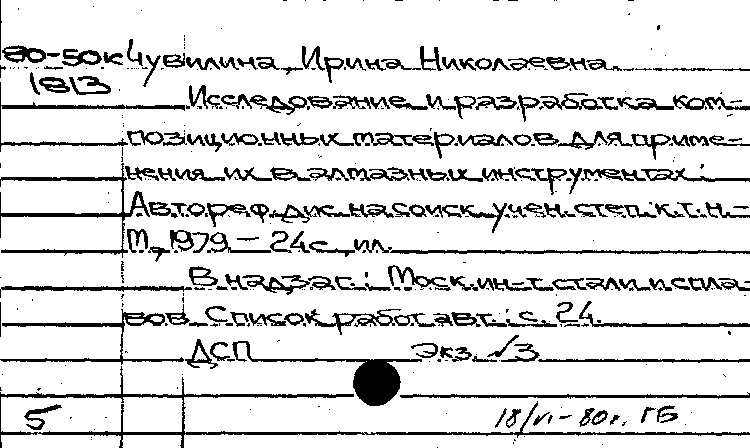 80-50к Чувилина, Ирина Николаевна.
1813
Исследование и разработка ком-
позиционных материалов для приме-
нения их в алмазных инструментах :
Автореф. дис. на соиск. учен. степ. к.т.н. -
М., 1979 - 24 с., ил.
В надзаг.: Моск. ин-т стали и спла-
вов. Список работ авт.: с. 24.
ДСП Экз. №3
5 18/VI-80г. ГБ